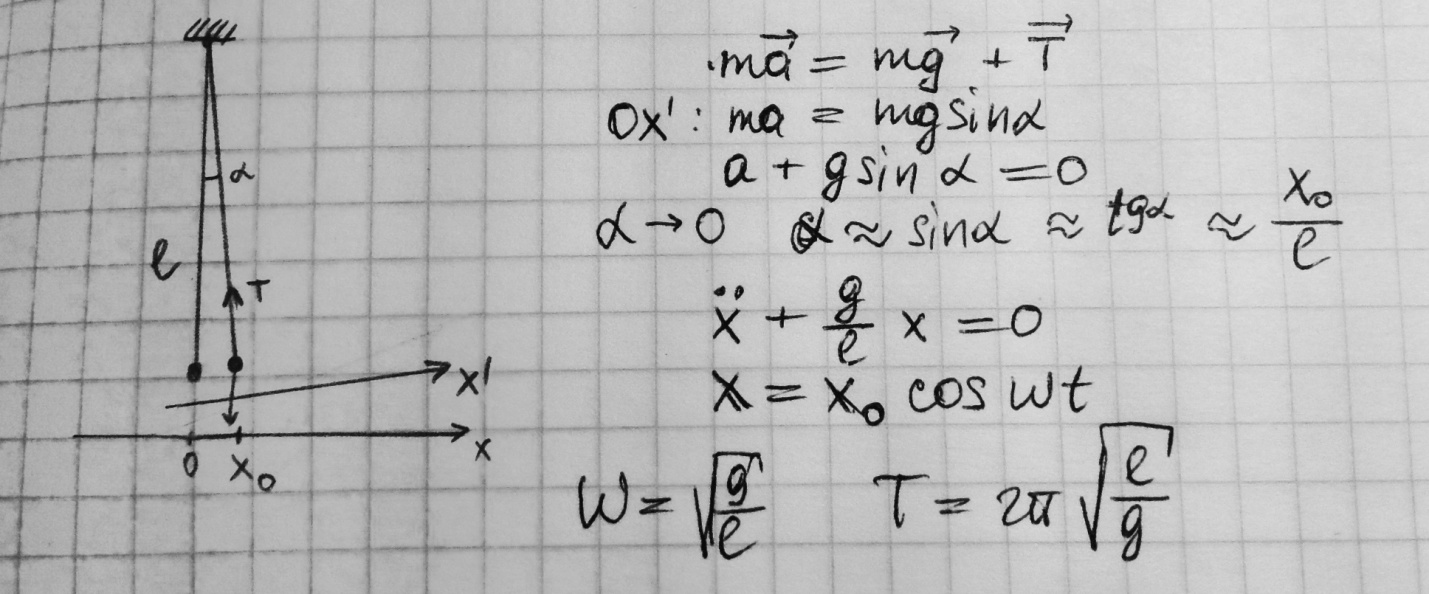 α
l
T
x'
x
0 x₀
ma⃗ = mg⃗ + T⃗
Ox' : ma = mg sinα
a + g sin α = 0
α → 0 α ≈ sinα ≈ tgα ≈ x₀/l
ẍ + g/l x = 0
x = x₀ cos ωt
ω = √(g/l) T = 2π √(l/g)